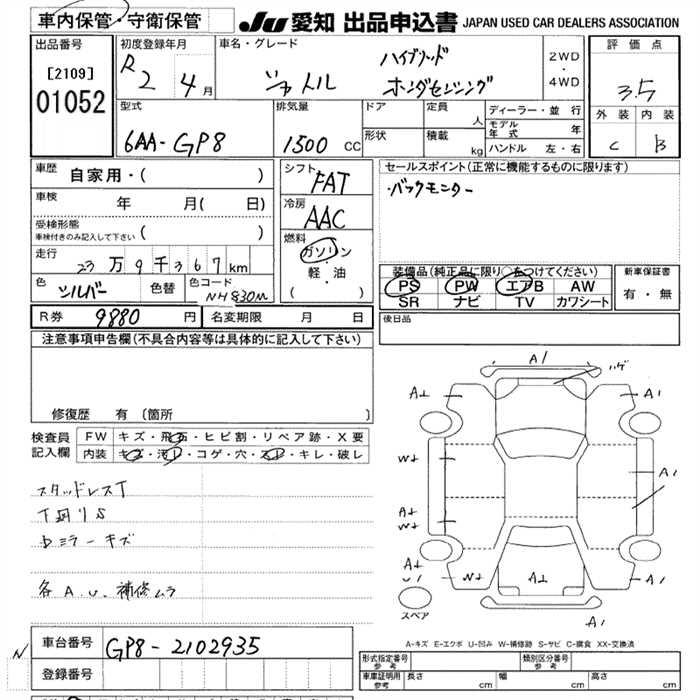 車内保管・守衛保管
JU 愛知 出品申込書 JAPAN USED CAR DEALERS ASSOCIATION
出品番号
[2109]
01052
初度登録年月
R 2 4月
車名・グレード
シャトル
ハイブリッド
ホンダセンシング
2WD
・
4WD
評価点
3.5
外装 内装
C B
型式
6AA-GP8
排気量
1500 CC
ドア
形状
定員 人
積載 kg
ディーラー・並行
モデル年式 年
ハンドル 左・右
車歴
自家用・( )
車検 年 月( 日)
受検形態
車検付きのみ記入して下さい ( )
走行
23万9千367km
色 シルバー 色替 色コード NH830M
シフト
FAT
冷房
AAC
燃料
ガソリン
・
軽・油
( )
セールスポイント(正常に機能するものに限ります)
・バックモニター
装備品(純正品に限り○をつけてください)
PS PW エアB AW
SR ナビ TV カワシート
新車保証書
有・無
R券 9880円 名変期限 月 日
後日品
注意事項申告欄(不具合内容等は具体的に記入して下さい)
修復歴 有〔箇所 〕
検査員
記入欄
FW キズ・飛石・ヒビ割・リペア跡・X要
内装 キズ・汚レ・コゲ・穴・スレ・キレ・破レ
スタッドレスT
下廻りS
Dミラーキズ
各 A.U. 補修ムラ
A1
ハゲ
A⊥
A1
W⊥
A1
A⊥
W⊥
A⊥
U1
W⊥
A⊥
A1
スペア
A1
A-キズ E-エクボ U-凹み W-補修跡 S-サビ C-腐食 XX-交換済
N
車台番号 GP8-2102935
登録番号
形式指定番号
参考
類別区分番号
参考
車庫証明用
参考
長さ cm 幅 cm 高さ cm